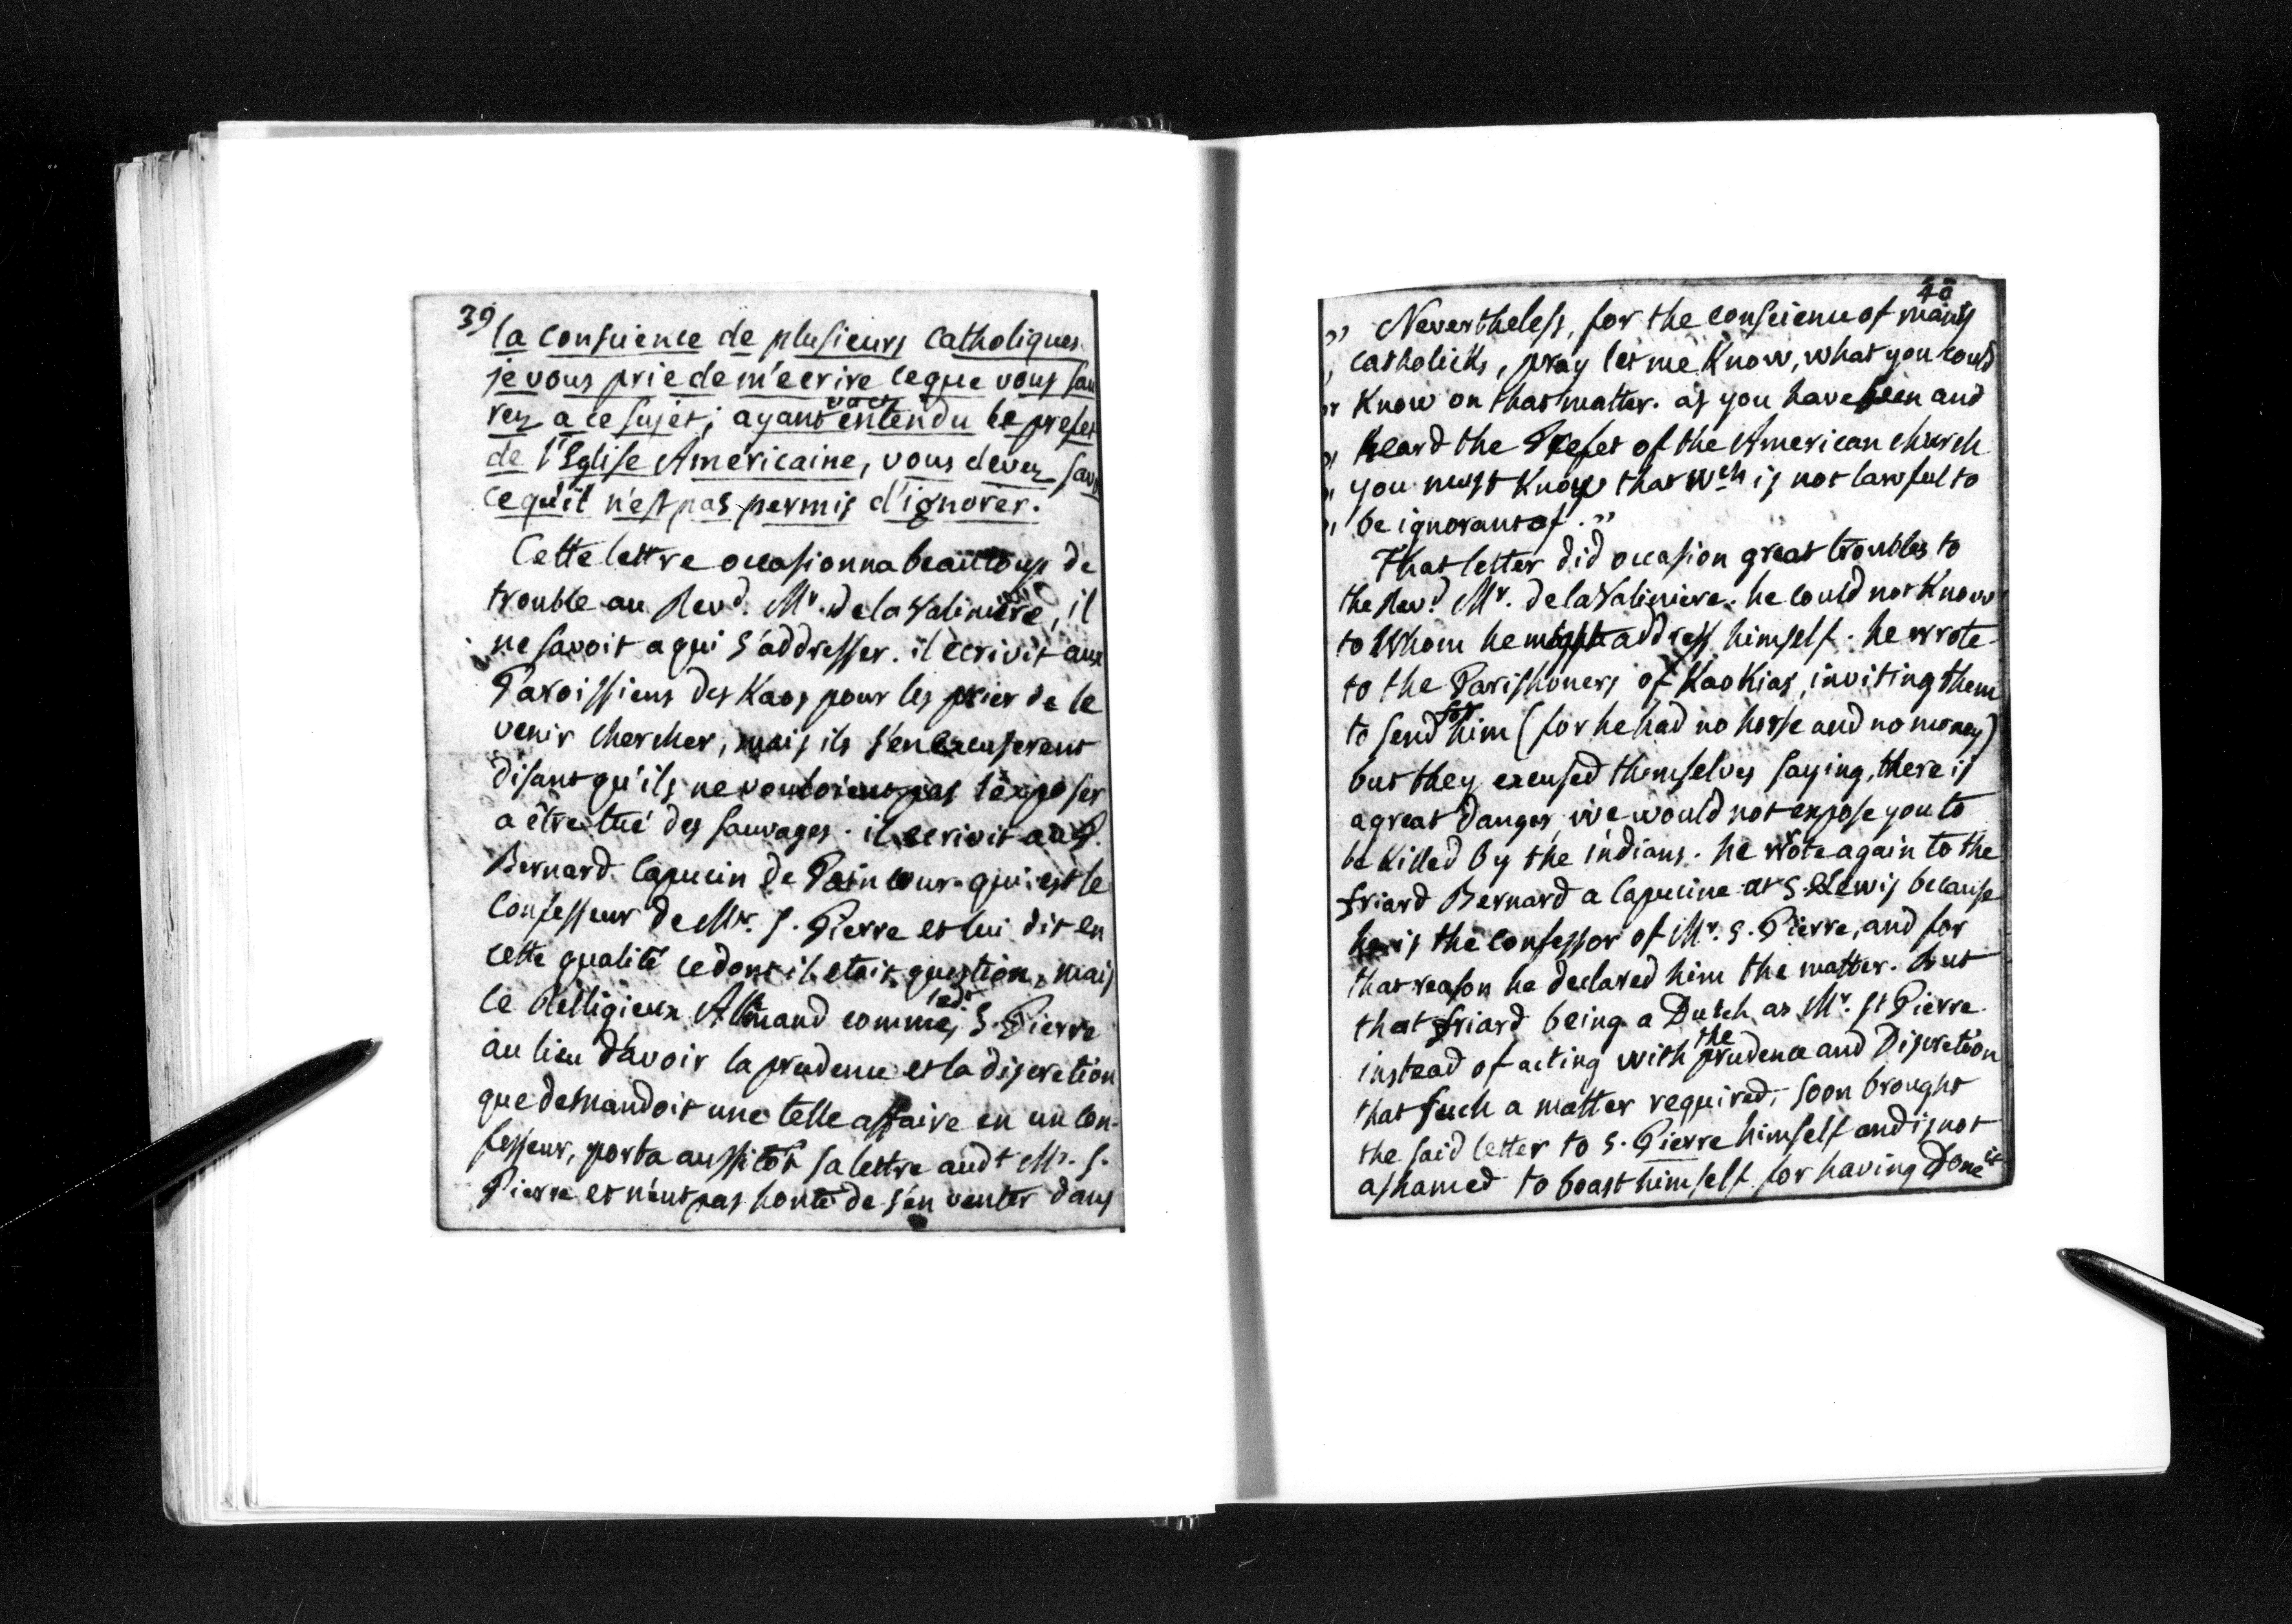 39
la conscience de plusieurs catholiques.
je vous prie de m'ecrire ce que vous sau
rez a ce sujet; ayant entendu le prefet
de l'Eglise Americaine, vous devez savo
ce qu'il n'est pas permis d'ignorer.
Cette lettre occasionna beaucoup de
trouble au Revd. Mr. de la Valiniere, il
ne savoit a qui s'addresser. il ecrivit aux
Paroissiens des Kaos pour les prier de le
venir chercher, mais ils s'en excuserent
disant qu'ils ne vouloient pas l'exposer
a être tué des sauvages. il ecrivit au P.
Bernard Capucin de Pain cour qui est le
confesseur de Mr. S. Pierre et lui dit en
cette qualité ce dont il etoit question, mais
ce Relligieux Allmand comme ledt S. Pierre
au lieu d'avoir la prudence et la discretion
que demandoit une telle affaire en un con-
fesseur, porta aussitôt sa lettre audt Mr. S.
Pierre et n'eut pas honte de s'en venter dans
40
" Nevertheless, for the conscience of many
catholicks, pray let me Know, what you could
Know on that matter. as you have seen and
heard the Prefet of the American church
you must Know that wch is not lawful to
be ignorant of. "
That letter did occasion great troubles to
the Revd. Mr. de la Valiniere. he could not Know
to Whom he might address himself. he wrote
to the Parishoners of KaoKias, inviting them
to send for him (for he had no horse and no money)
but they excused themselves saying, there is
a great danger, we would not expose you to
be Killed by the indians. he wrote again to the
friard Bernard a Capucine at S. Lewis because
he is the confessor of Mr. S. Pierre, and for
that reason he declared him the matter. but
that friard being a Dutch as Mr. St Pierre
instead of acting with the prudence and Discretion
that such a matter required, soon brought
the said letter to S. Pierre himself and is not
ashamed to boast himself for having Done it